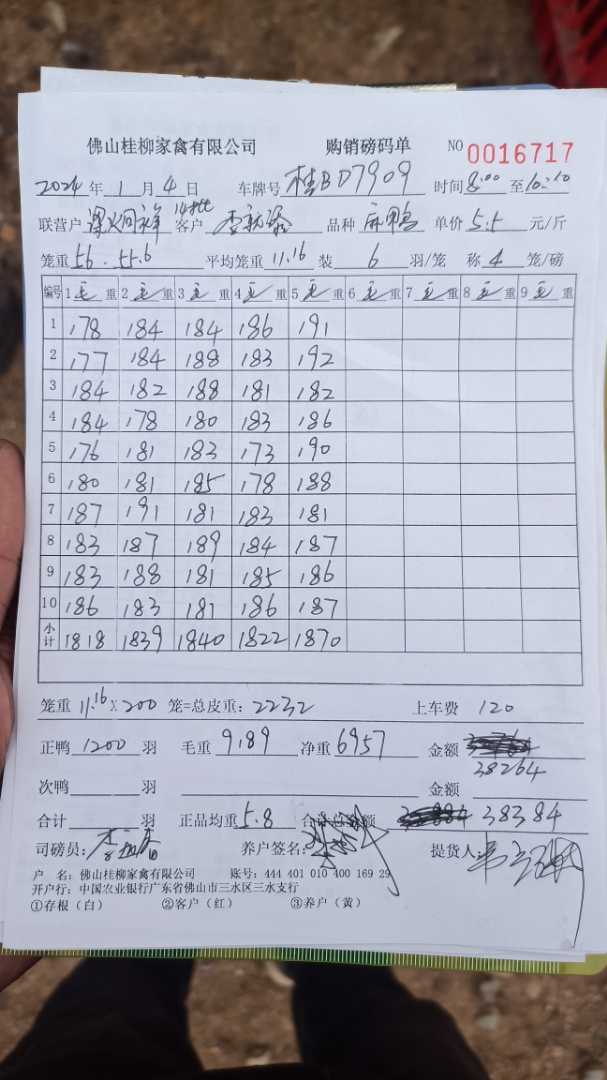 佛山桂柳家禽有限公司 购销磅码单 NO 0016717
2024年1月4日 车牌号 桂BD7909 时间8:00至10:10
联营户 梁炳祥 14批 客户 品种 麻鸭 单价5.5元/斤
笼重 56.55.6 平均笼重 11.16 装 6 羽/笼 称 4 笼/磅
编号 1毛重 2毛重 3毛重 4毛重 5毛重 6毛重 7毛重 8毛重 9毛重
1 178 184 184 186 191
2 177 184 188 183 192
3 184 182 188 181 182
4 184 178 180 183 186
5 176 181 183 173 190
6 180 181 185 178 188
7 187 191 181 183 181
8 183 187 189 184 187
9 183 188 181 185 186
10 186 183 181 186 187
小计 1818 1839 1840 1822 1870
笼重 11.16 X 200 笼=总皮重: 2232 上车费 120
正鸭 1200 羽 毛重 9189 净重 6957 金额
38264
次鸭 羽 金额
合计 羽 正品均重 5.8 合计总金额 38384
司磅员: 养户签名: 提货人:
户 名: 佛山桂柳家禽有限公司 账号: 444 401 010 400 169 29
开户行: 中国农业银行广东省佛山市三水区三水支行
①存根(白) ②客户(红) ③养户(黄)